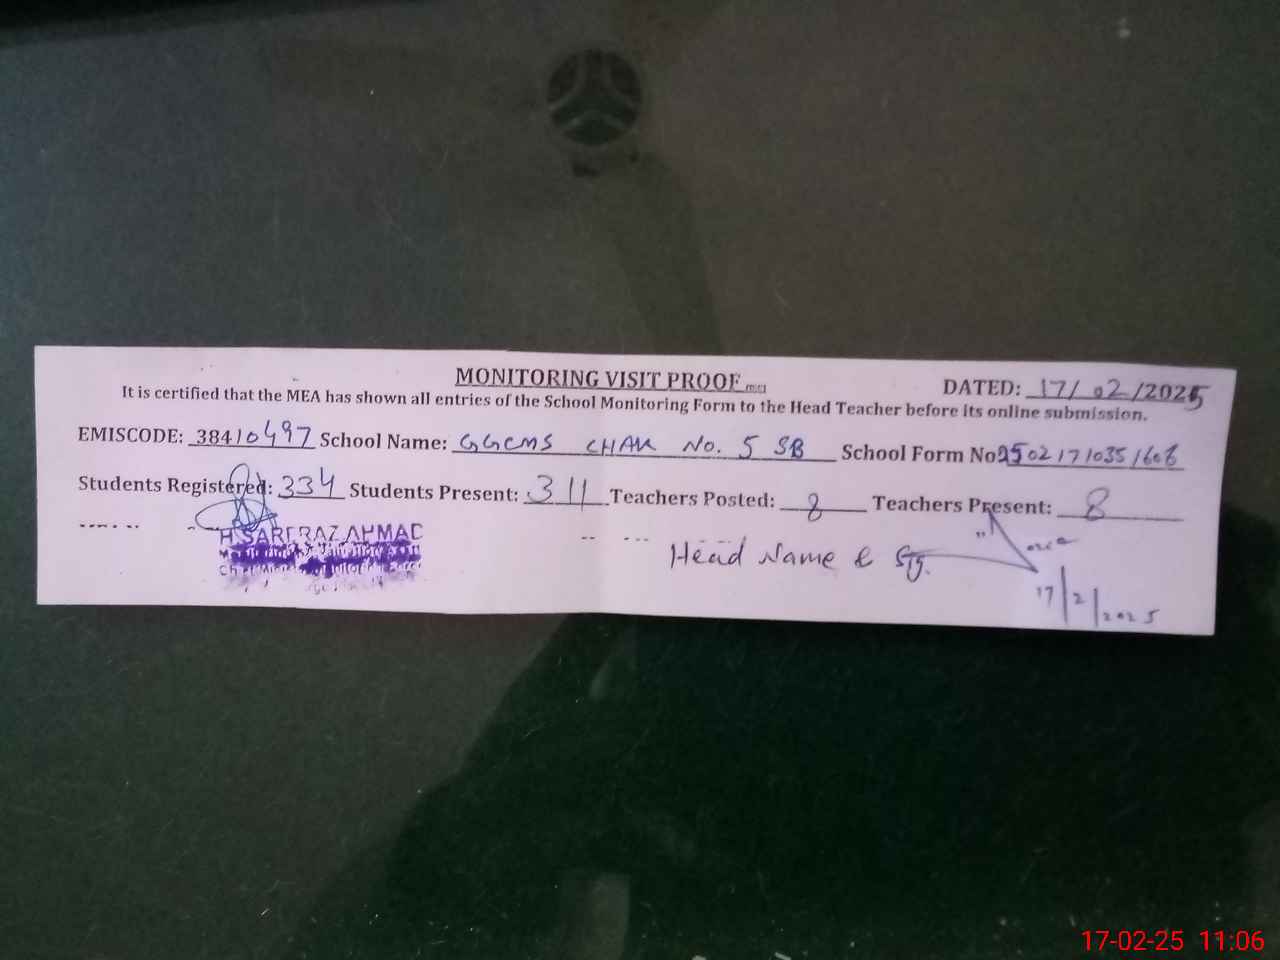 MONITORING VISIT PROOF
DATED: 17/02/2025
It is certified that the MEA has shown all entries of the School Monitoring Form to the Head Teacher before its online submission.
EMISCODE: 38410497 School Name: GGCMS CHAK NO. 5 SB School Form No 25021710351608
Students Registered: 334 Students Present: 311 Teachers Posted: 8 Teachers Present: 8
H.SARFRAZ AHMAD
Head Name & Sig.
17/2/2025
17-02-25 11:06